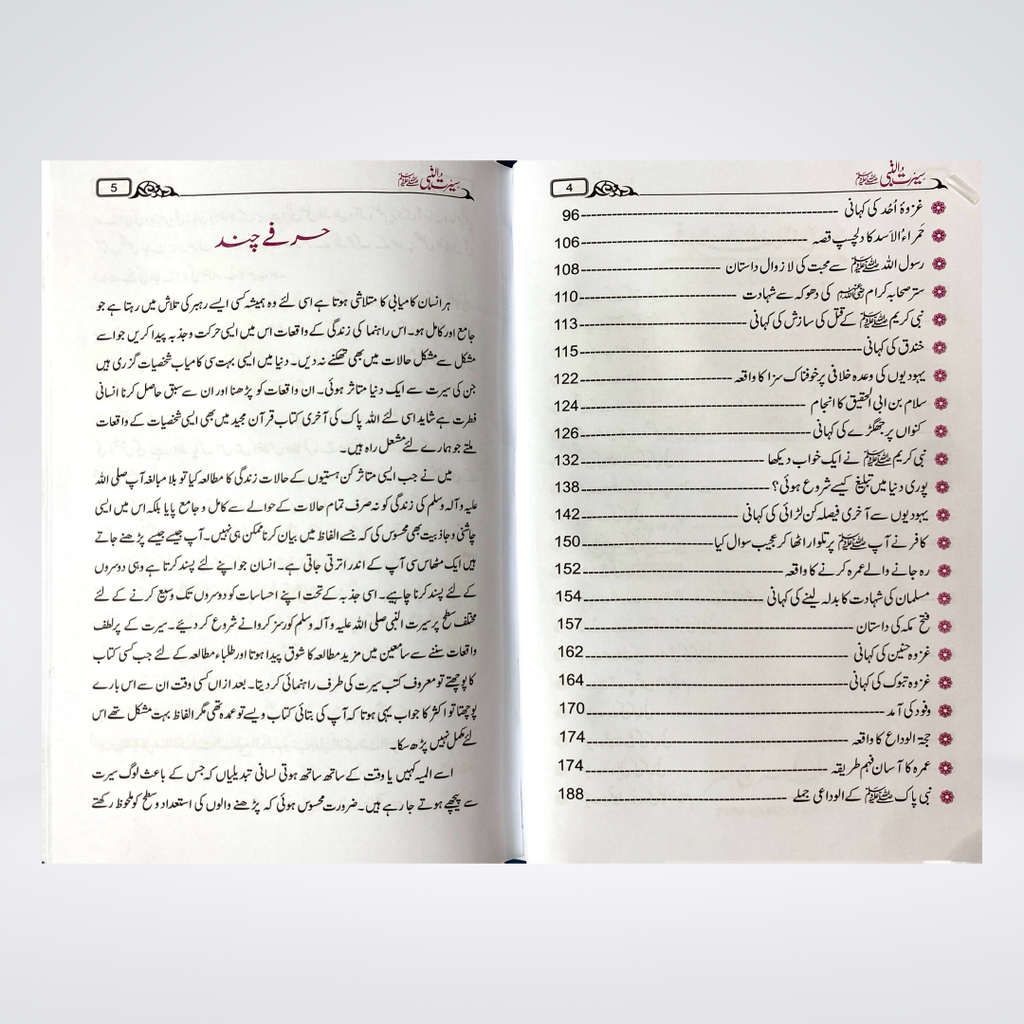 سیرت النبی ﷺ
4
غزوۂ اُحد کی کہانی ---------- 96
حَمراءُ الاَسد کا دلچسپ قصہ ---------- 106
رسول اللہ ﷺ سے محبت کی لازوال داستان ---------- 108
ستر صحابہ کرام رضی اللہ عنہم کی دھوکہ سے شہادت ---------- 110
نبی کریم ﷺ کے قتل کی سازش کی کہانی ---------- 113
خندق کی کہانی ---------- 115
یہودیوں کی وعدہ خلافی پر خوفناک سزا کا واقعہ ---------- 122
سلام بن ابی الحقیق کا انجام ---------- 124
کنواں پر جھگڑے کی کہانی ---------- 126
نبی کریم ﷺ نے ایک خواب دیکھا ---------- 132
پوری دنیا میں تبلیغ کیسے شروع ہوئی؟ ---------- 138
یہودیوں سے آخری فیصلہ کن لڑائی کی کہانی ---------- 142
کافر نے آپ ﷺ پر تلوار اٹھا کر عجیب سوال کیا ---------- 150
رہ جانے والے عمرہ کرنے کا واقعہ ---------- 152
مسلمان کی شہادت کا بدلہ لینے کی کہانی ---------- 154
فتح مکہ کی داستان ---------- 157
غزوہ حنین کی کہانی ---------- 162
غزوہ تبوک کی کہانی ---------- 164
وفود کی آمد ---------- 170
حجۃ الوداع کا واقعہ ---------- 174
عمرہ کا آسان فہم طریقہ ---------- 174
نبی پاک ﷺ کے الوداعی جملے ---------- 188
سیرت النبی ﷺ
5
حرفے چند
ہر انسان کامیابی کا متلاشی ہوتا ہے اسی لئے وہ ہمیشہ کسی ایسے رہبر کی تلاش میں رہتا ہے جو
جامع اور کامل ہو۔ اس راہنما کی زندگی کے واقعات اس میں ایسی حرکت و جذبہ پیدا کریں جو اسے
مشکل سے مشکل حالات میں بھی تھکنے نہ دیں۔ دنیا میں ایسی بہت سی کامیاب شخصیات گزری ہیں
جن کی سیرت سے ایک دنیا متاثر ہوئی۔ ان واقعات کو پڑھنا اور ان سے سبق حاصل کرنا انسانی
فطرت ہے شاید اسی لئے اللہ پاک کی آخری کتاب قرآن مجید میں بھی ایسی شخصیات کے واقعات
ملتے جو ہمارے لئے مشعل راہ ہیں۔
میں نے جب ایسی متاثر کن ہستیوں کے حالات زندگی کا مطالعہ کیا تو بلا مبالغہ آپ صلی اللہ
علیہ وآلہ وسلم کی زندگی کو نہ صرف تمام حالات کے حوالے سے کامل و جامع پایا بلکہ اس میں ایسی
چاشنی و جاذبیت بھی محسوس کی کہ جسے الفاظ میں بیان کرنا ممکن ہی نہیں۔ آپ جیسے جیسے پڑھتے جاتے
ہیں ایک مٹھاس سی آپ کے اندر اترتی جاتی ہے۔ انسان جو اپنے لئے پسند کرتا ہے وہی دوسروں
کے لئے پسند کرنا چاہیے۔ اسی جذبہ کے تحت اپنے احساسات کو دوسروں تک وسیع کرنے کے لئے
مختلف سطح پر سیرت النبی صلی اللہ علیہ و آلہ وسلم کورسز کروانے شروع کر دیئے۔ سیرت کے پر لطف
واقعات سننے سے سامعین میں مزید مطالعہ کا شوق پیدا ہوتا اور طلباء مطالعہ کے لئے جب کسی کتاب
کا پوچھتے تو معروف کتب سیرت کی طرف راہنمائی کر دیتا۔ بعد ازاں کسی وقت ان سے اس بارے
پوچھتا تو اکثر کا جواب یہی ہوتا کہ آپ کی بتائی کتاب ویسے تو عمدہ تھی مگر الفاظ بہت مشکل تھے اس
لئے مکمل نہیں پڑھ سکا۔
اسے المیہ کہیں یا وقت کے ساتھ ساتھ ہوتی لسانی تبدیلیاں کہ جس کے باعث لوگ سیرت
سے پیچھے ہوتے جا رہے ہیں۔ ضرورت محسوس ہوئی کہ پڑھنے والوں کی استعداد و سطح کو ملحوظ رکھتے